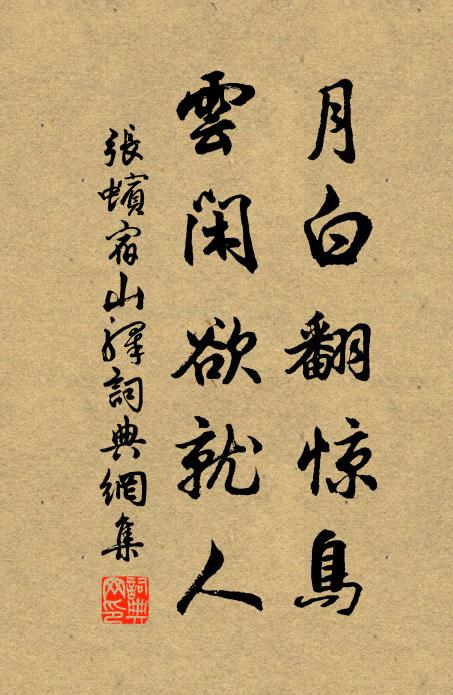 月白翻惊鳥
雲閑欲就人
張蠙宿山驛詞典網集
詞典
网印